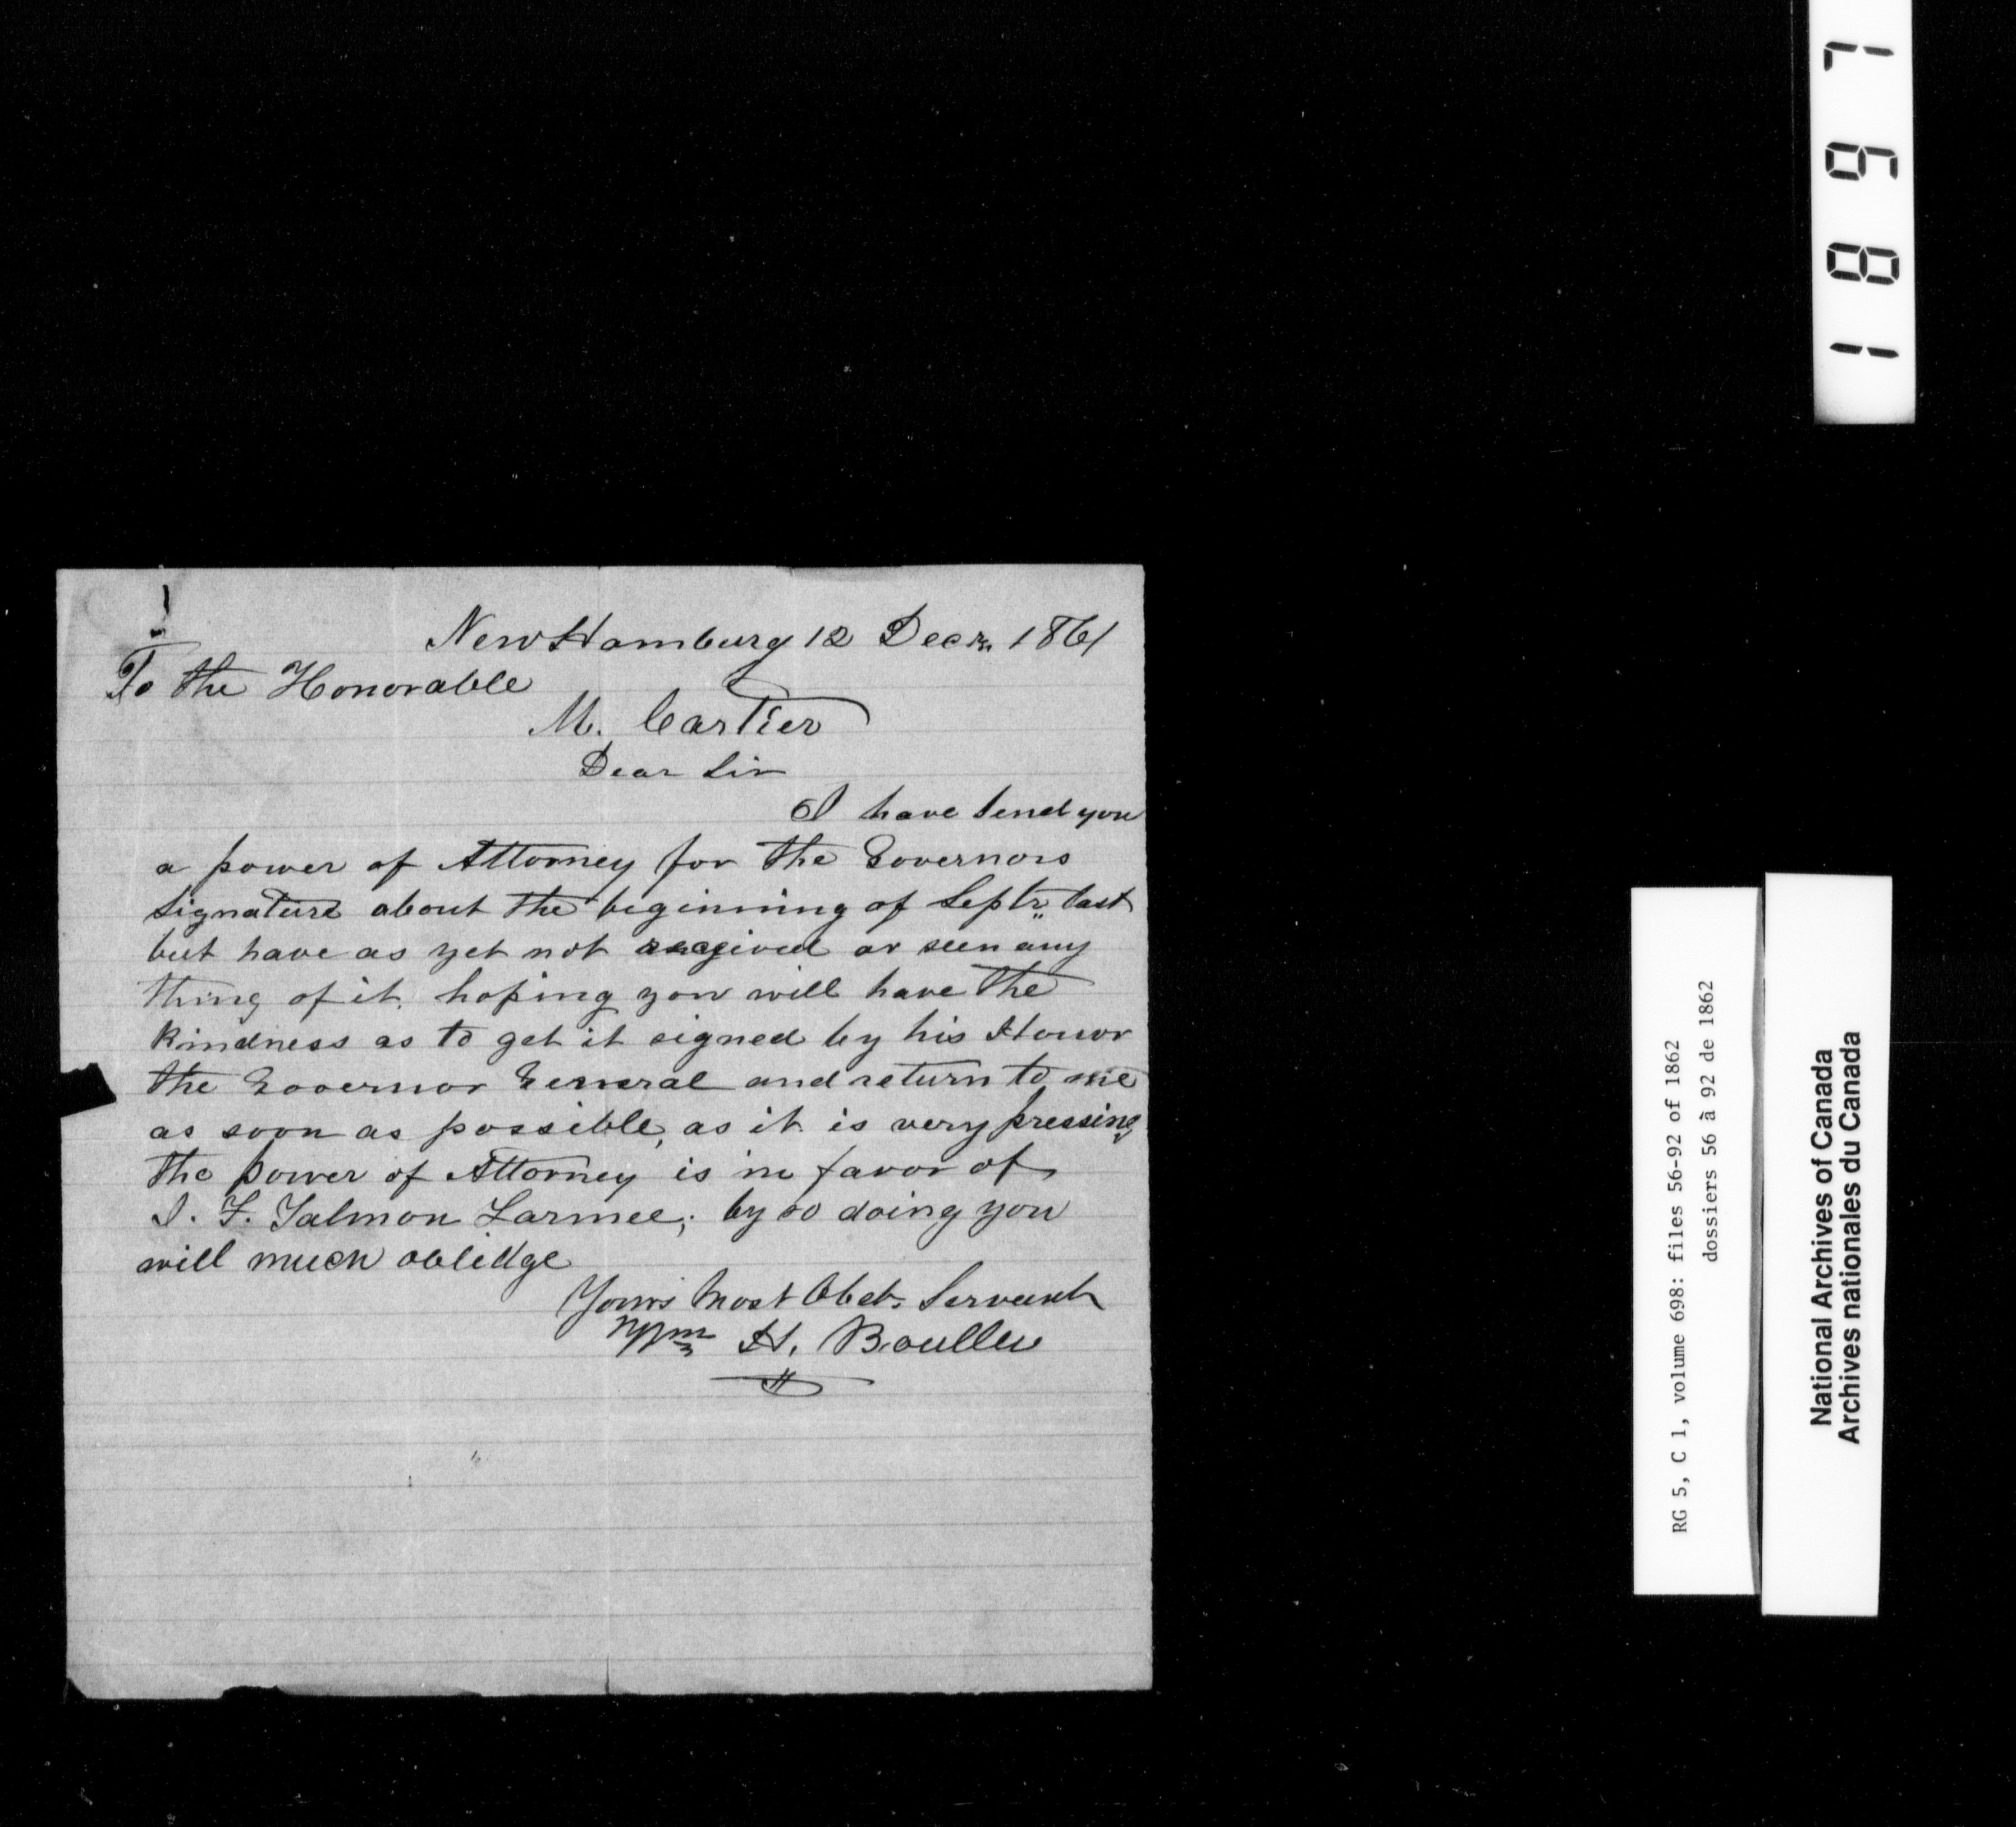 New Hamburg 12 Decr. 1861
To the Honorable
M. Cartier
Dear Sir
I have send you
a power of Attorney for the Governors
Signature about the beginning of Septr. last
but have as yet not received or seen any
thing of it. hoping you will have the
kindness as to get it signed by his Honor
the Governor General and return to me
as soon as possible, as it is very pressing,
the power of Attorney is in favor of
I. F. Salmon Larmee; by so doing you
will much oblidge
Yours Most Obdt. Servant
Wm H. Boullee
1897
RG 5, C 1, volume 698: files 56-92 of 1862
dossiers 56 à 92 de 1862
National Archives of Canada
Archives nationales du Canada